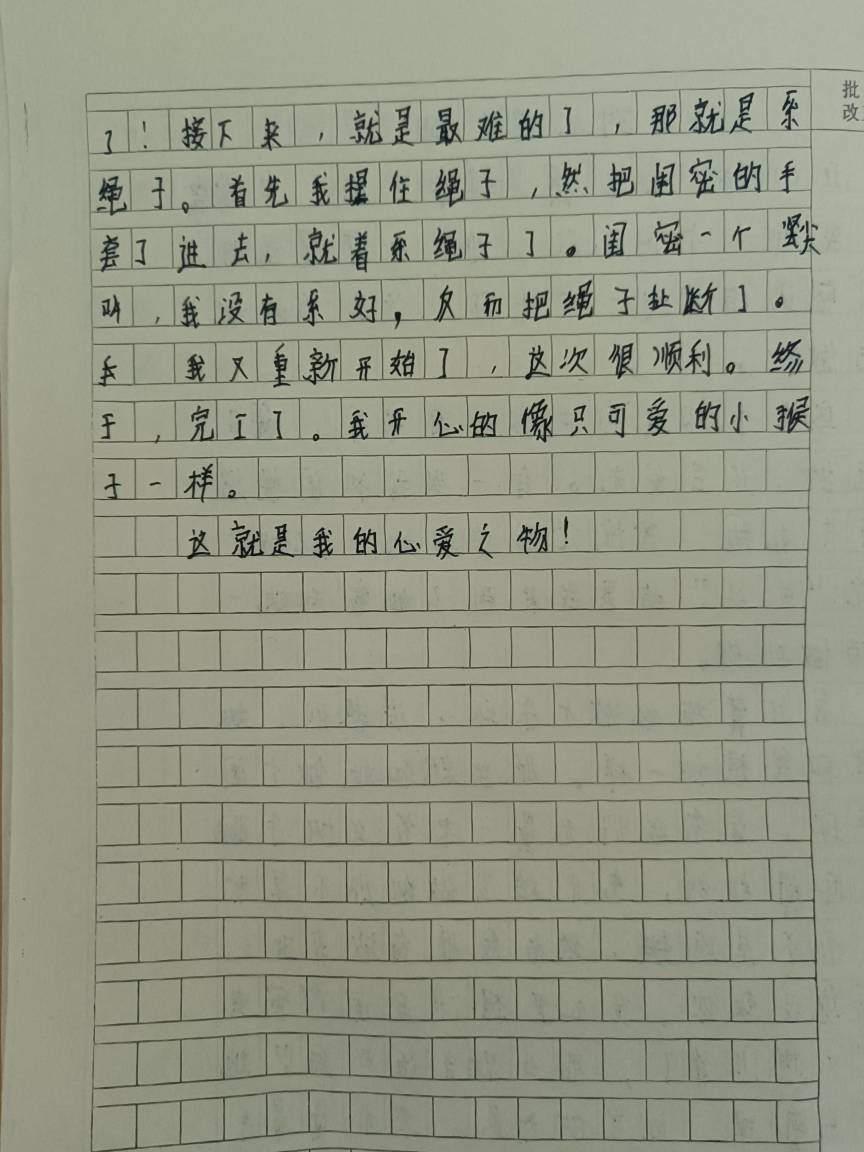 批
改
了！接下来，就是最难的了，那就是系
绳子。首先我握住绳子，然把闺密的手
套了进去，就着系绳子了。闺密一个尖
叫，我没有系好，反而把绳子扯断了。
我又重新开始了，这次很顺利。终
于，完工了。我开心的像只可爱的小猴
子一样。
这就是我的心爱之物！